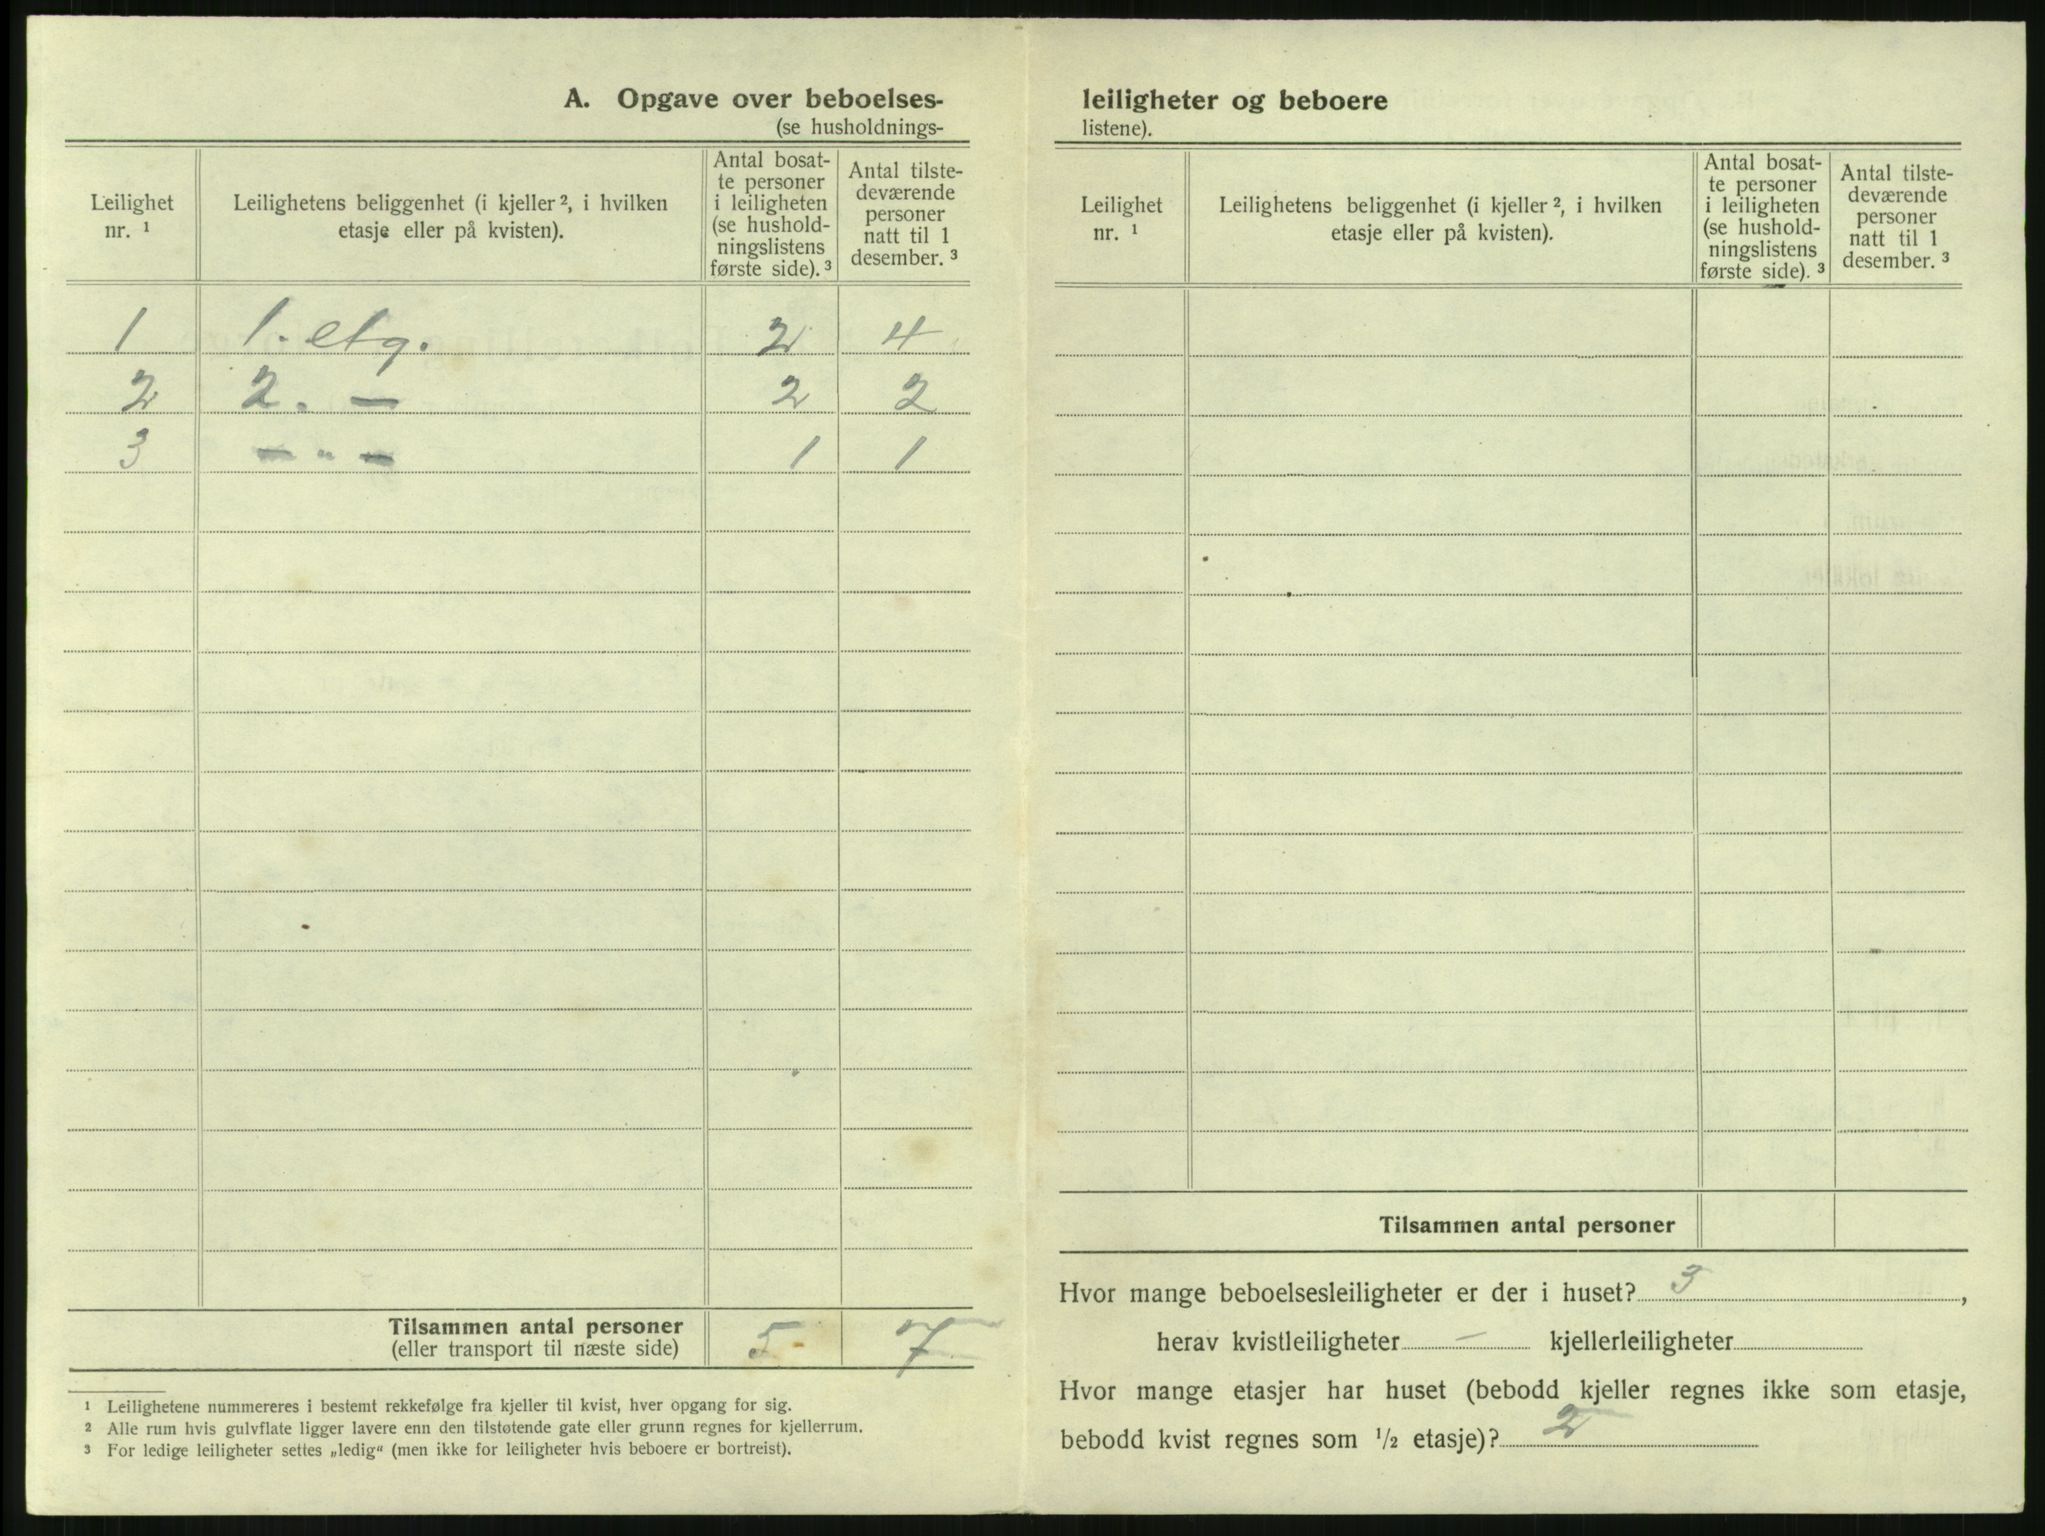 A. Opgave over beboelses-
(se husholdnings-
Leilighet nr. ¹
Leilighetens beliggenhet (i kjeller ², i hvilken etasje eller på kvisten).
Antal bosat-
te personer
i leiligheten
(se hushold-
ningslistens
første side). ³
Antal tilste-
deværende
personer
natt til 1
desember. ³
1 1. etg. 2 4
2 2. — 2 2
3 — " — 1 1
Tilsammen antal personer 5 - 7
(eller transport til næste side)
¹ Leilighetene nummereres i bestemt rekkefølge fra kjeller til kvist, hver opgang for sig.
² Alle rum hvis gulvflate ligger lavere enn den tilstøtende gate eller grunn regnes for kjellerrum.
³ For ledige leiligheter settes „ledig“ (men ikke for leiligheter hvis beboere er bortreist).
leiligheter og beboere
listene).
Leilighet nr. ¹
Leilighetens beliggenhet (i kjeller ², i hvilken etasje eller på kvisten).
Antal bosat-
te personer
i leiligheten
(se hushold-
ningslistens
første side). ³
Antal tilste-
deværende
personer
natt til 1
desember. ³
Tilsammen antal personer
Hvor mange beboelsesleiligheter er der i huset? 3,
herav kvistleiligheter — kjellerleiligheter
Hvor mange etasjer har huset (bebodd kjeller regnes ikke som etasje,
bebodd kvist regnes som ½ etasje)? 2